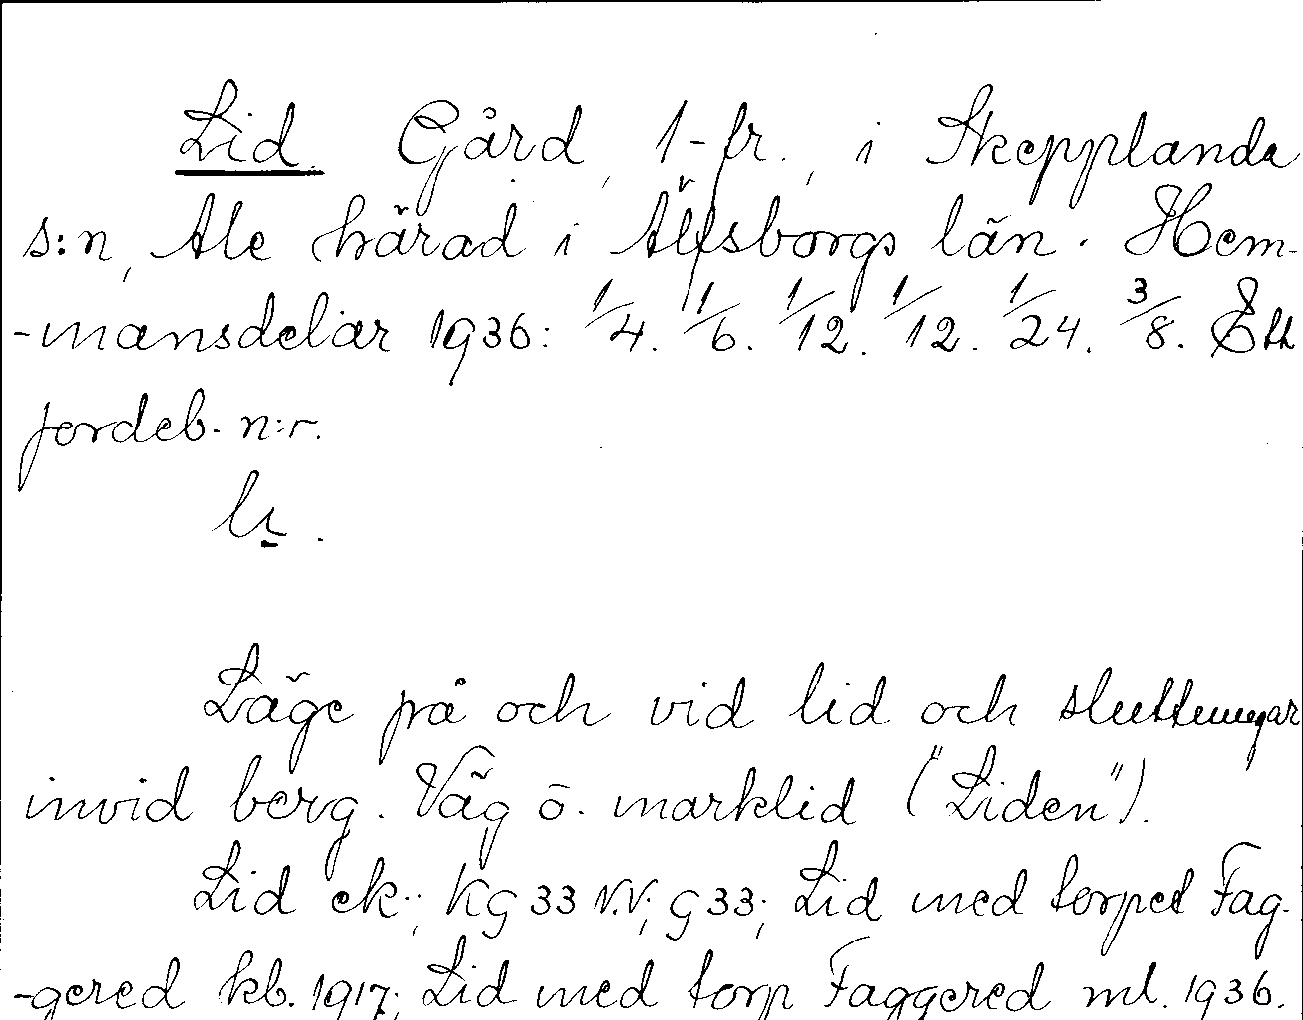 Lid. Gård, 1-br., i Skepplanda
s:n, Ale härad i Älfsborgs län. Hem-
-mansdelar 1936: 1/4. 1/6. 1/12. 1/12. 1/24. 3/8. Ett
jordeb. n:r.
Läge på och vid lid och sluttningar
invid berg. Väg ö. marklid ("Liden").
Lid ek.; KG 33 N.V; G 33; Lid med torpet Fag-
-gered kb. 1917; Lid med torp Faggered ml. 1936.